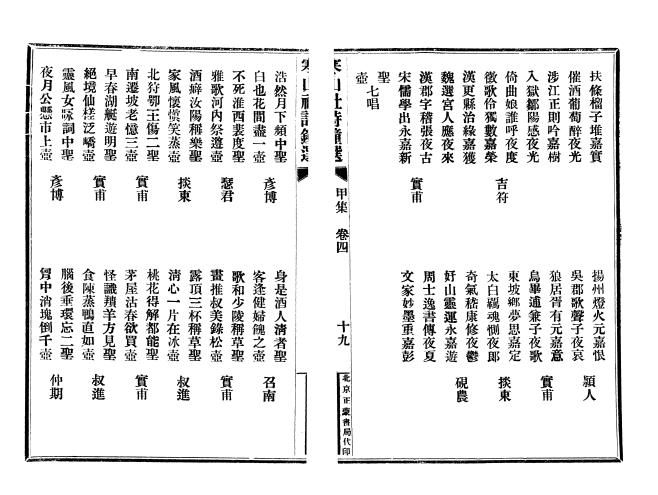 扶條榴子堆嘉實　揚州燈火元嘉恨
催酒葡萄醉夜光　吳郡歌聲子夜哀　穎人
涉江正則吟嘉樹　狼居胥有元嘉意
入獄鄒陽感夜光　烏畢逋兼子夜歌　實甫
倚曲娘誰呼夜度　東坡鄉夢思嘉定
徵歌伶獨數嘉榮　吉符　太白羈魂惻夜郎　掞東
漢更縣治緣嘉獲　奇氣嵇康修夜鬱
魏選宮人應夜來　好山靈運永嘉遊　硯農
漢郡字稽張夜古　周士逸書傳夜夏
宋儒學出永嘉新　實甫　文家妙墨重嘉彭
聖
七唱
壺
寒山社詩鐘選　甲集　卷四　十九　北京正蒙書局代印
浩然月下頻中聖　身是酒人清者聖
白也花間盡一壺　彥博　客逢健婦餽之壺　召南
不死淮西裴度聖　歌和少陵稱草聖
雅歌河內祭遵壺　慧君　畫推叔美錄松壺　實甫
酒癖汝陽稱樂聖　露頂三杯稱草聖
家風懷慣笑蒸壺　掞東　清心一片在冰壺　叔進
北狩鄂王傷二聖　桃花得解都能聖
南遷坡老憶三壺　實甫　茅屋沽春欲買壺　實甫
早春湖艇遊明聖　怪識羵羊方見聖
絕境仙槎泛嶠壺　實甫　食陳蒸鴨直如壺　叔進
靈風女咏詞中聖　腦後垂環忘二聖
夜月公懸市上壺　彥博　胷中消塊倒千壺　仲期